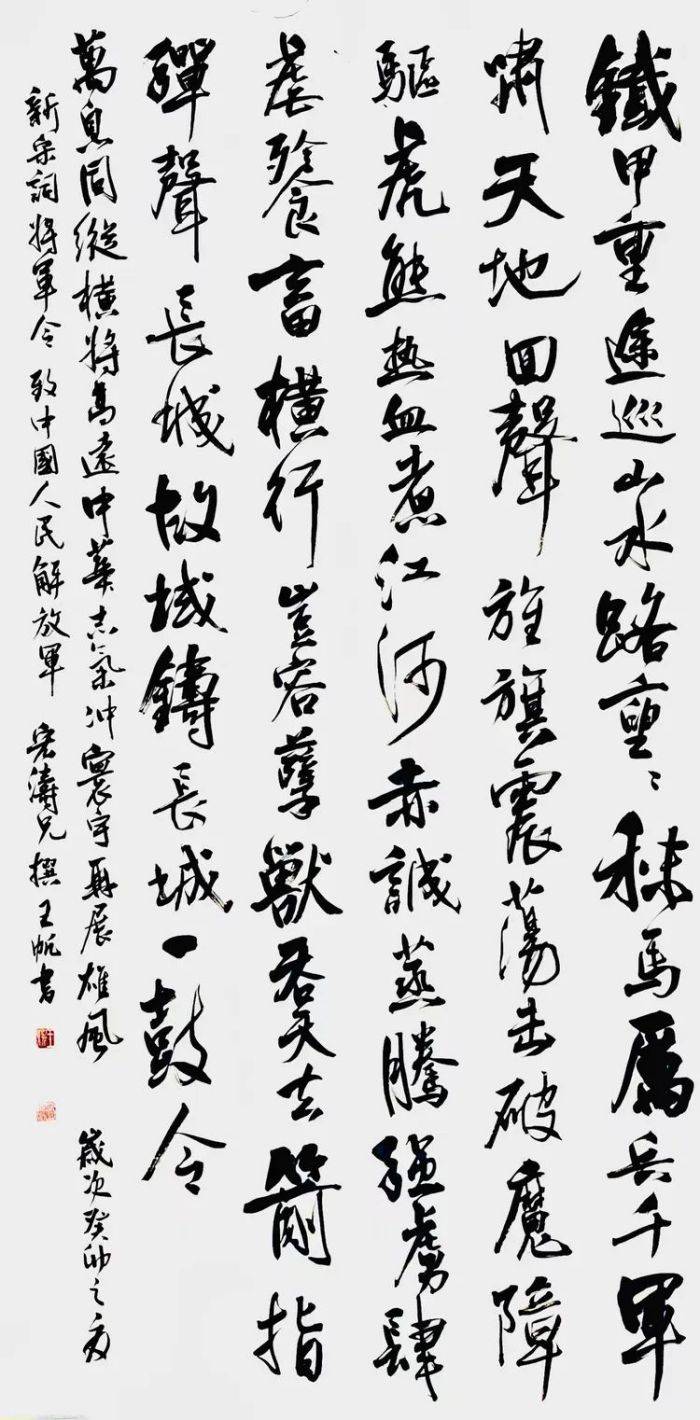 鐵甲重途巡山水路重〻秣馬厲兵千軍
嘯天地回聲旌旗震蕩击破魔障
驅虎熊热血煮江河赤誠蒸騰強虜肆
虐畜橫行豈容孽獸吞天去箭指
彈聲長城故域鑄長城一鼓令
萬息同縱橫將高遠中華志氣冲寰宇再展雄風 歲次癸卯之夏
新宋詞將軍令 致中國人民解放軍 宏濤兄撰 王帆書